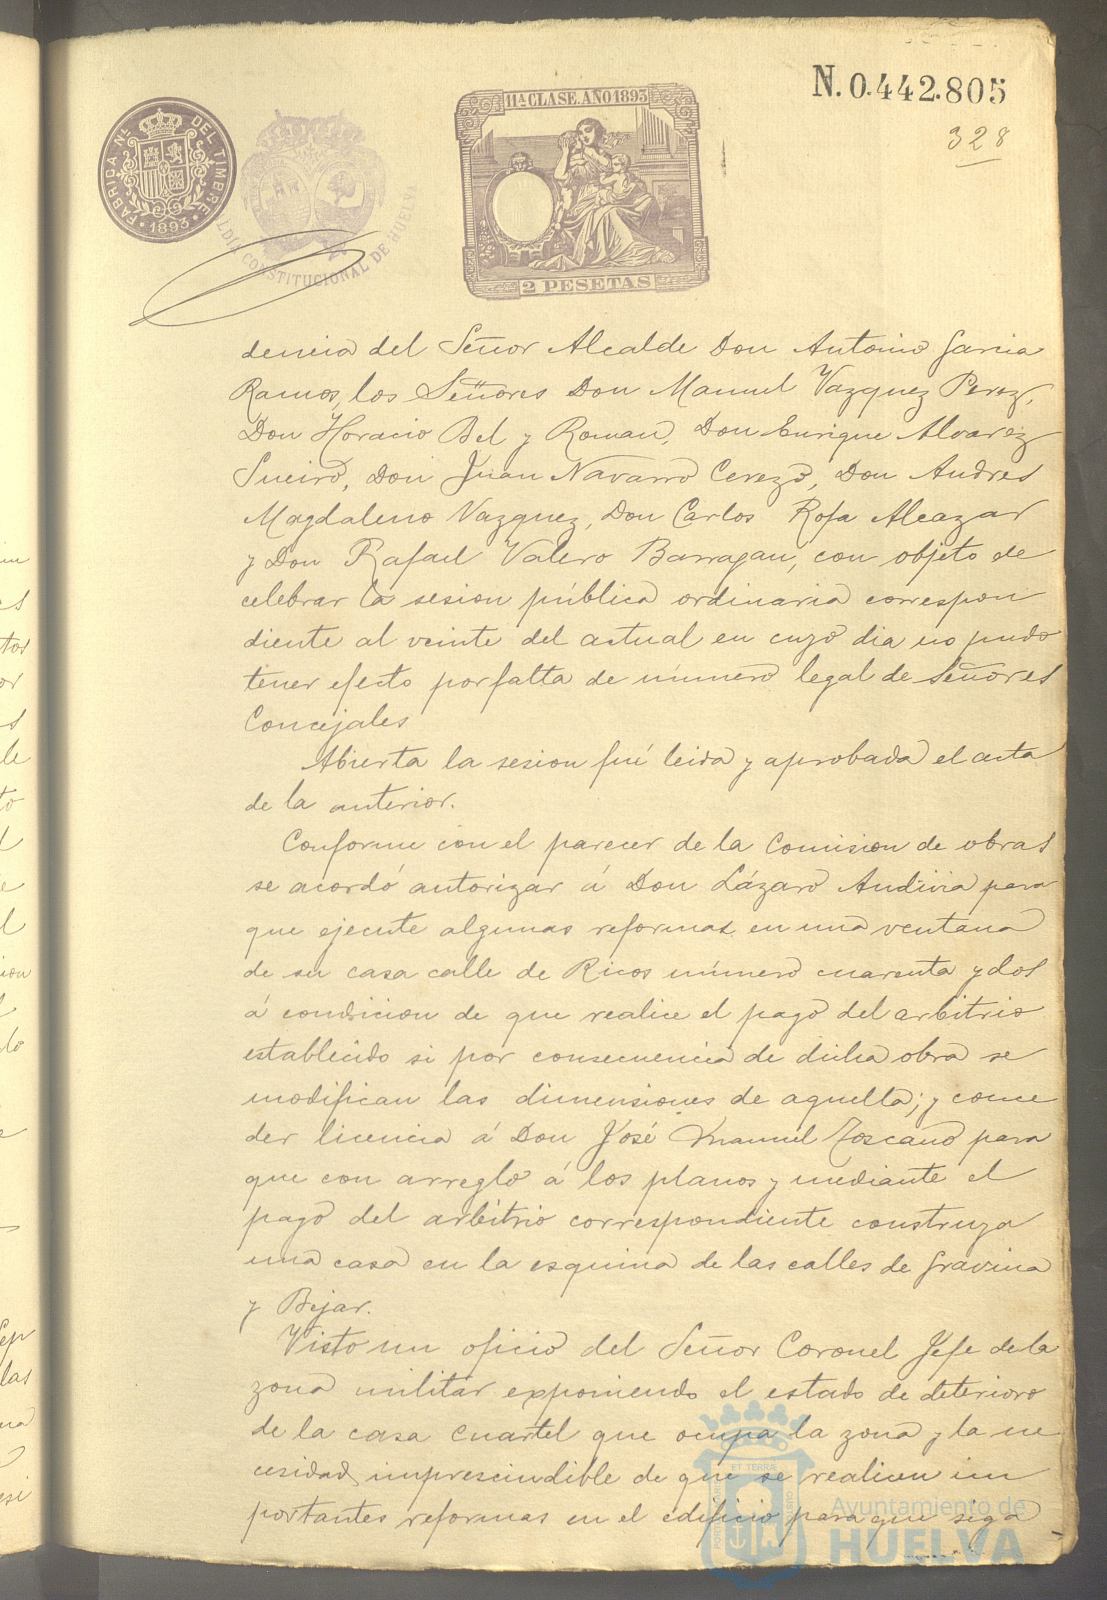 N. 0.442.805
328
11ª CLASE. AÑO 1893
FÁBRICA NL. DEL TIMBRE
1893
LDIA CONSTITUCIONAL DE HUELVA
2 PESETAS
dencia del Señor Alcalde Don Antonio Garcia
Ramos, los Señores Don Manuel Vazquez Perez,
Don Horacio Bel y Roman, Don Enrique Alvarez
Sueiro, Don Juan Navarro Cerezo, Don Andres
Magdaleno Vazquez, Don Carlos Rofa Alcazar
y Don Rafael Valero Barragan, con objeto de
celebrar la sesion pública ordinaria correspon
diente al veinte del actual en cuyo dia no pudo
tener efecto por falta de número legal de Señores
Concejales
Abierta la sesion fué leida y aprobada el acta
de la anterior.
Conforme con el parecer de la Comision de obras
se acordó autorizar á Don Lázaro Andivia para
que ejecute algunas reformas en una ventana
de su casa calle de Ricos número cuarenta y dos
á condicion de que realice el pago del arbitrio
establecido si por consecuencia de dicha obra se
modifican las dimensiones de aquella; y conce
der licencia á Don José Manuel Toscano para
que con arreglo á los planos y mediante el
pago del arbitrio correspondiente construya
una casa en la esquina de las calles de Gravina
y Bejar.
Visto un oficio del Señor Coronel Jefe de la
zona militar exponiendo el estado de deterioro
de la casa cuartel que ocupa la zona y la ne
cesidad imprescindible de que se realicen im
portantes reformas en el edificio para que siga
Ayuntamiento de
HUELVA